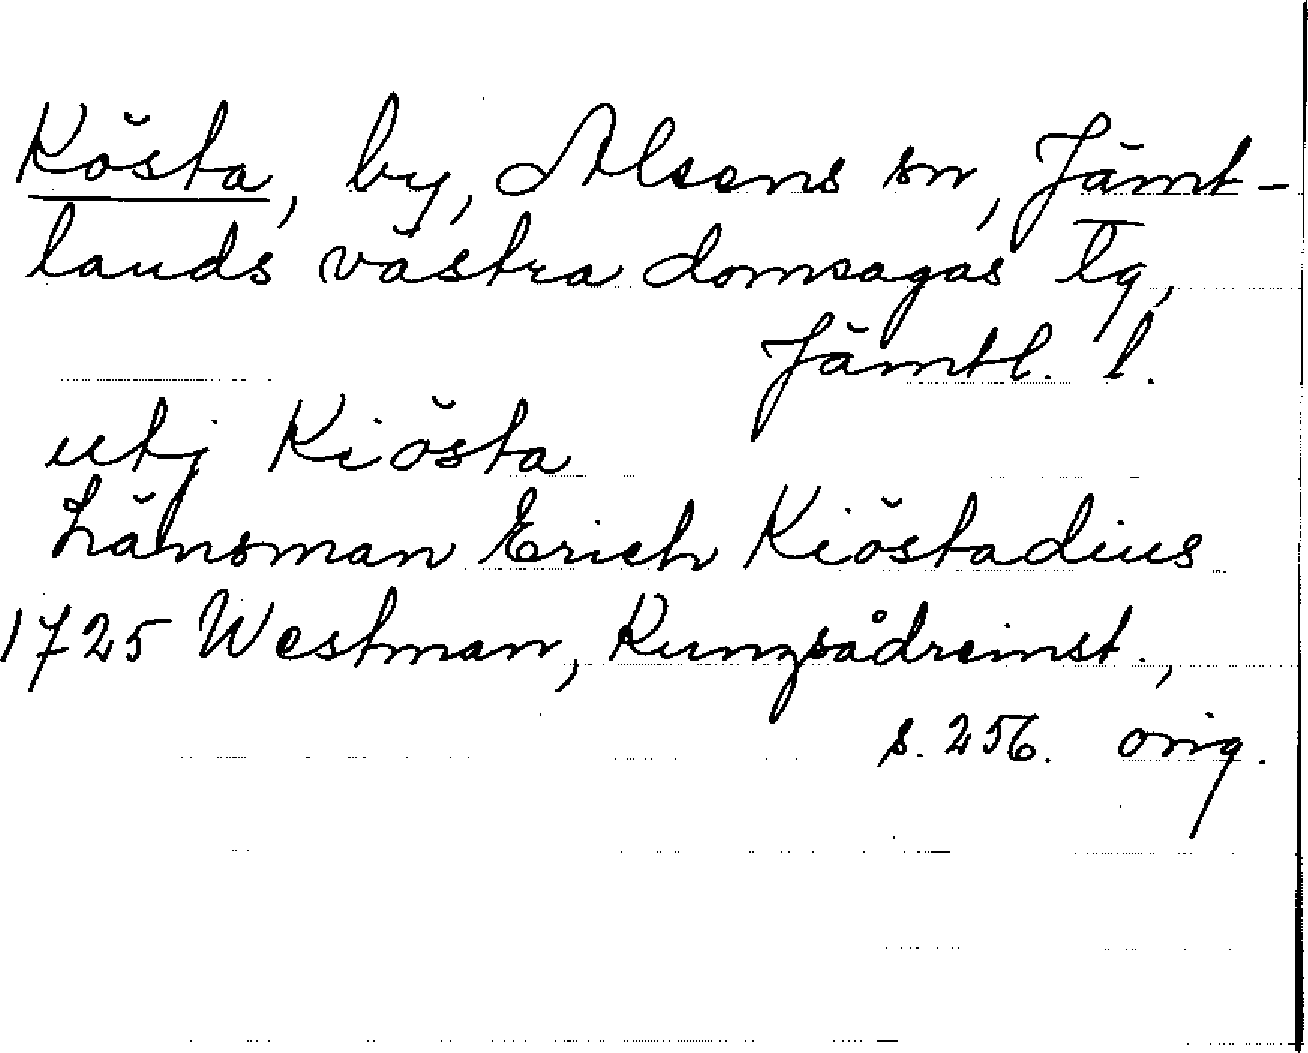 Kösta, by, Alsens sn, Jämt-
lands västra domsagas Tg,
Jämtl. l.
utj Kiösta
Länsman Erich Kiöstadius
1725 Westman, Rungsådreinst.,
s. 256. orig.